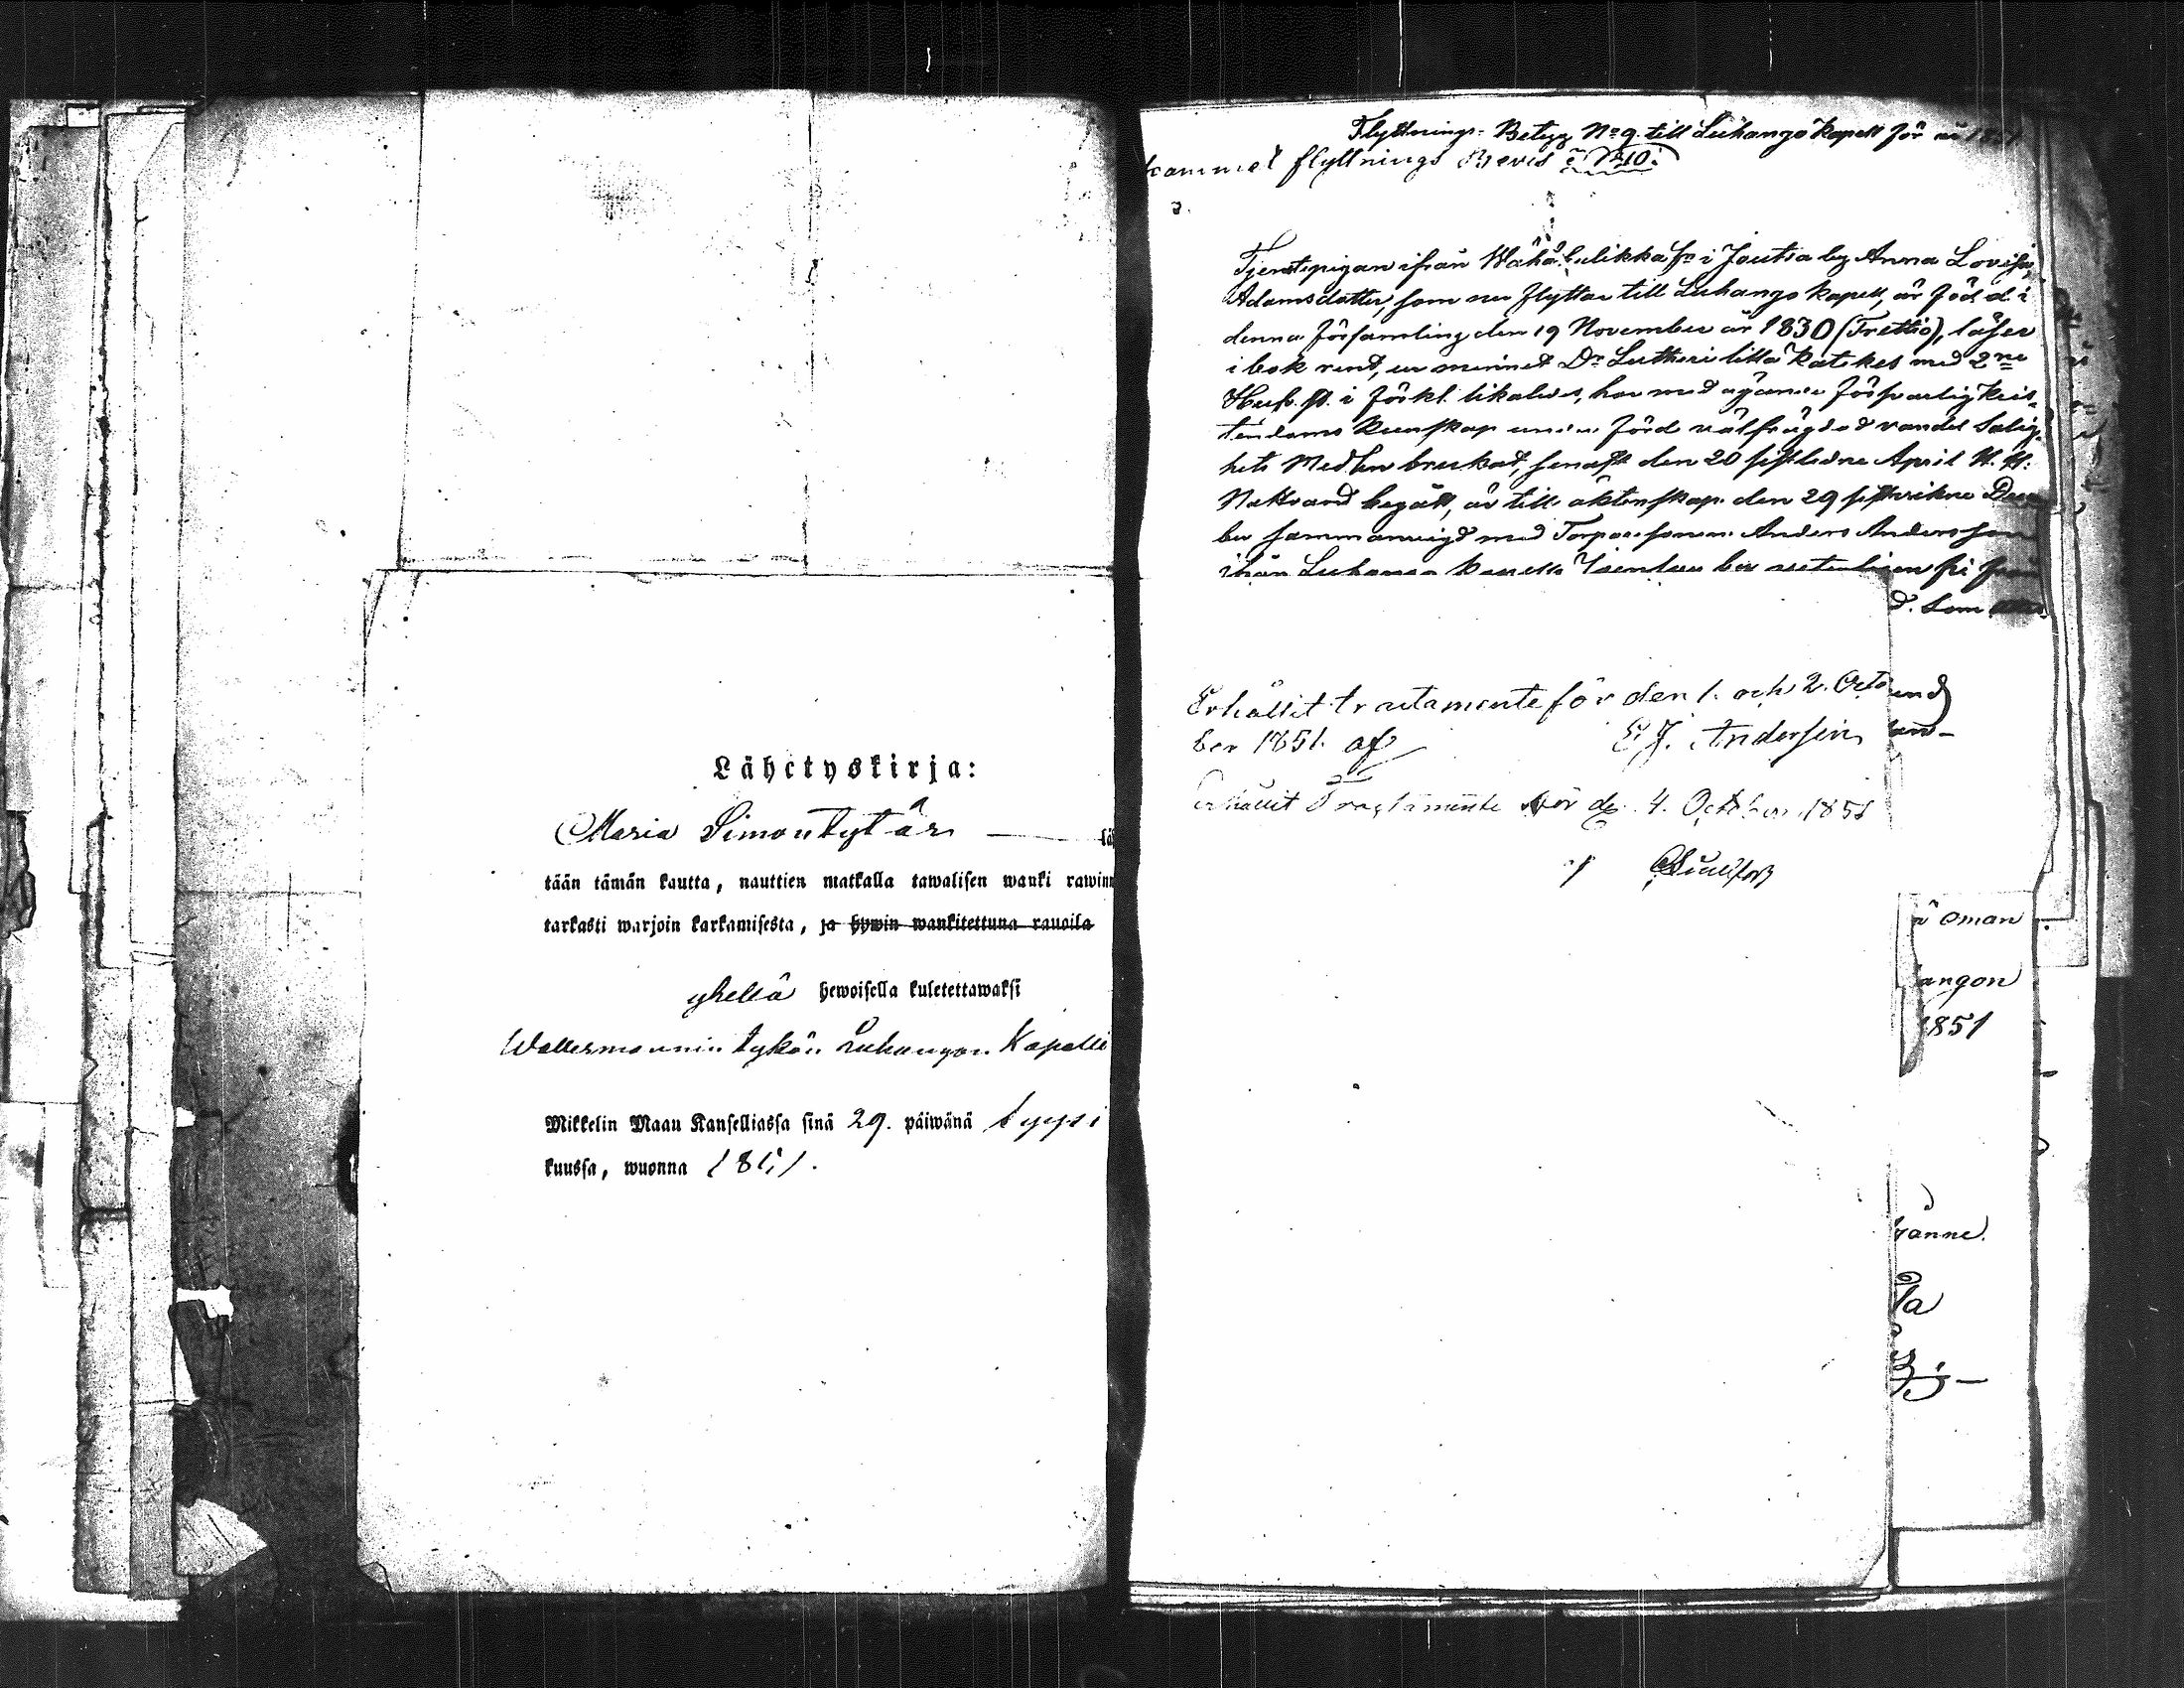 Lähetyskirja:
Maria Simontytär lä
tään tämän kautta, nauttien matkalla tawalisen wanki rawinn
tarkasti warjoin karkamisesta, ja hywin wankitettuna rauoila
yhellä hewoisella kuletettawaksi
Wallesmannin tykön Luhangon Kapelli
Mikkelin Maan Kanselliassa sinä 29. päiwänä Syysi
kuussa, wuonna 1851.
Flyttnings-Betyg No 9. till Luhango kapell för år 1851
flyttnings Bevis
Tjenstepigan ifrån i Joutsa by Anna Lovisa
Adamsdotter, som nu flyttar till Luhango kapell, är född i
denna församling den 19 November år 1830 (Trettio), läser
i bok rent, ur minnet Dr Lutheri lilla katekes med 2ne
Husf. st. i förkl. likaledes, har med ägande försvarlig kris-
tendoms kunskap under förd välfrägdad vandel Salig-
hets Medlen brukat, senast den 20 sistledne April H. H.
Nattvard begått, är till äktenskap den 29 Decem
ber sammanvigd med Torparesonen Anders Andersson
ifrån Luhango kapells by
d. som
Erhållit tractamente för den 1. och 2. Octo
ber 1851. af E. J. Andersin
und
an-
Erhållit Tractamente för d. 4. October 1851
af
oman
angon
1851
anne.
la